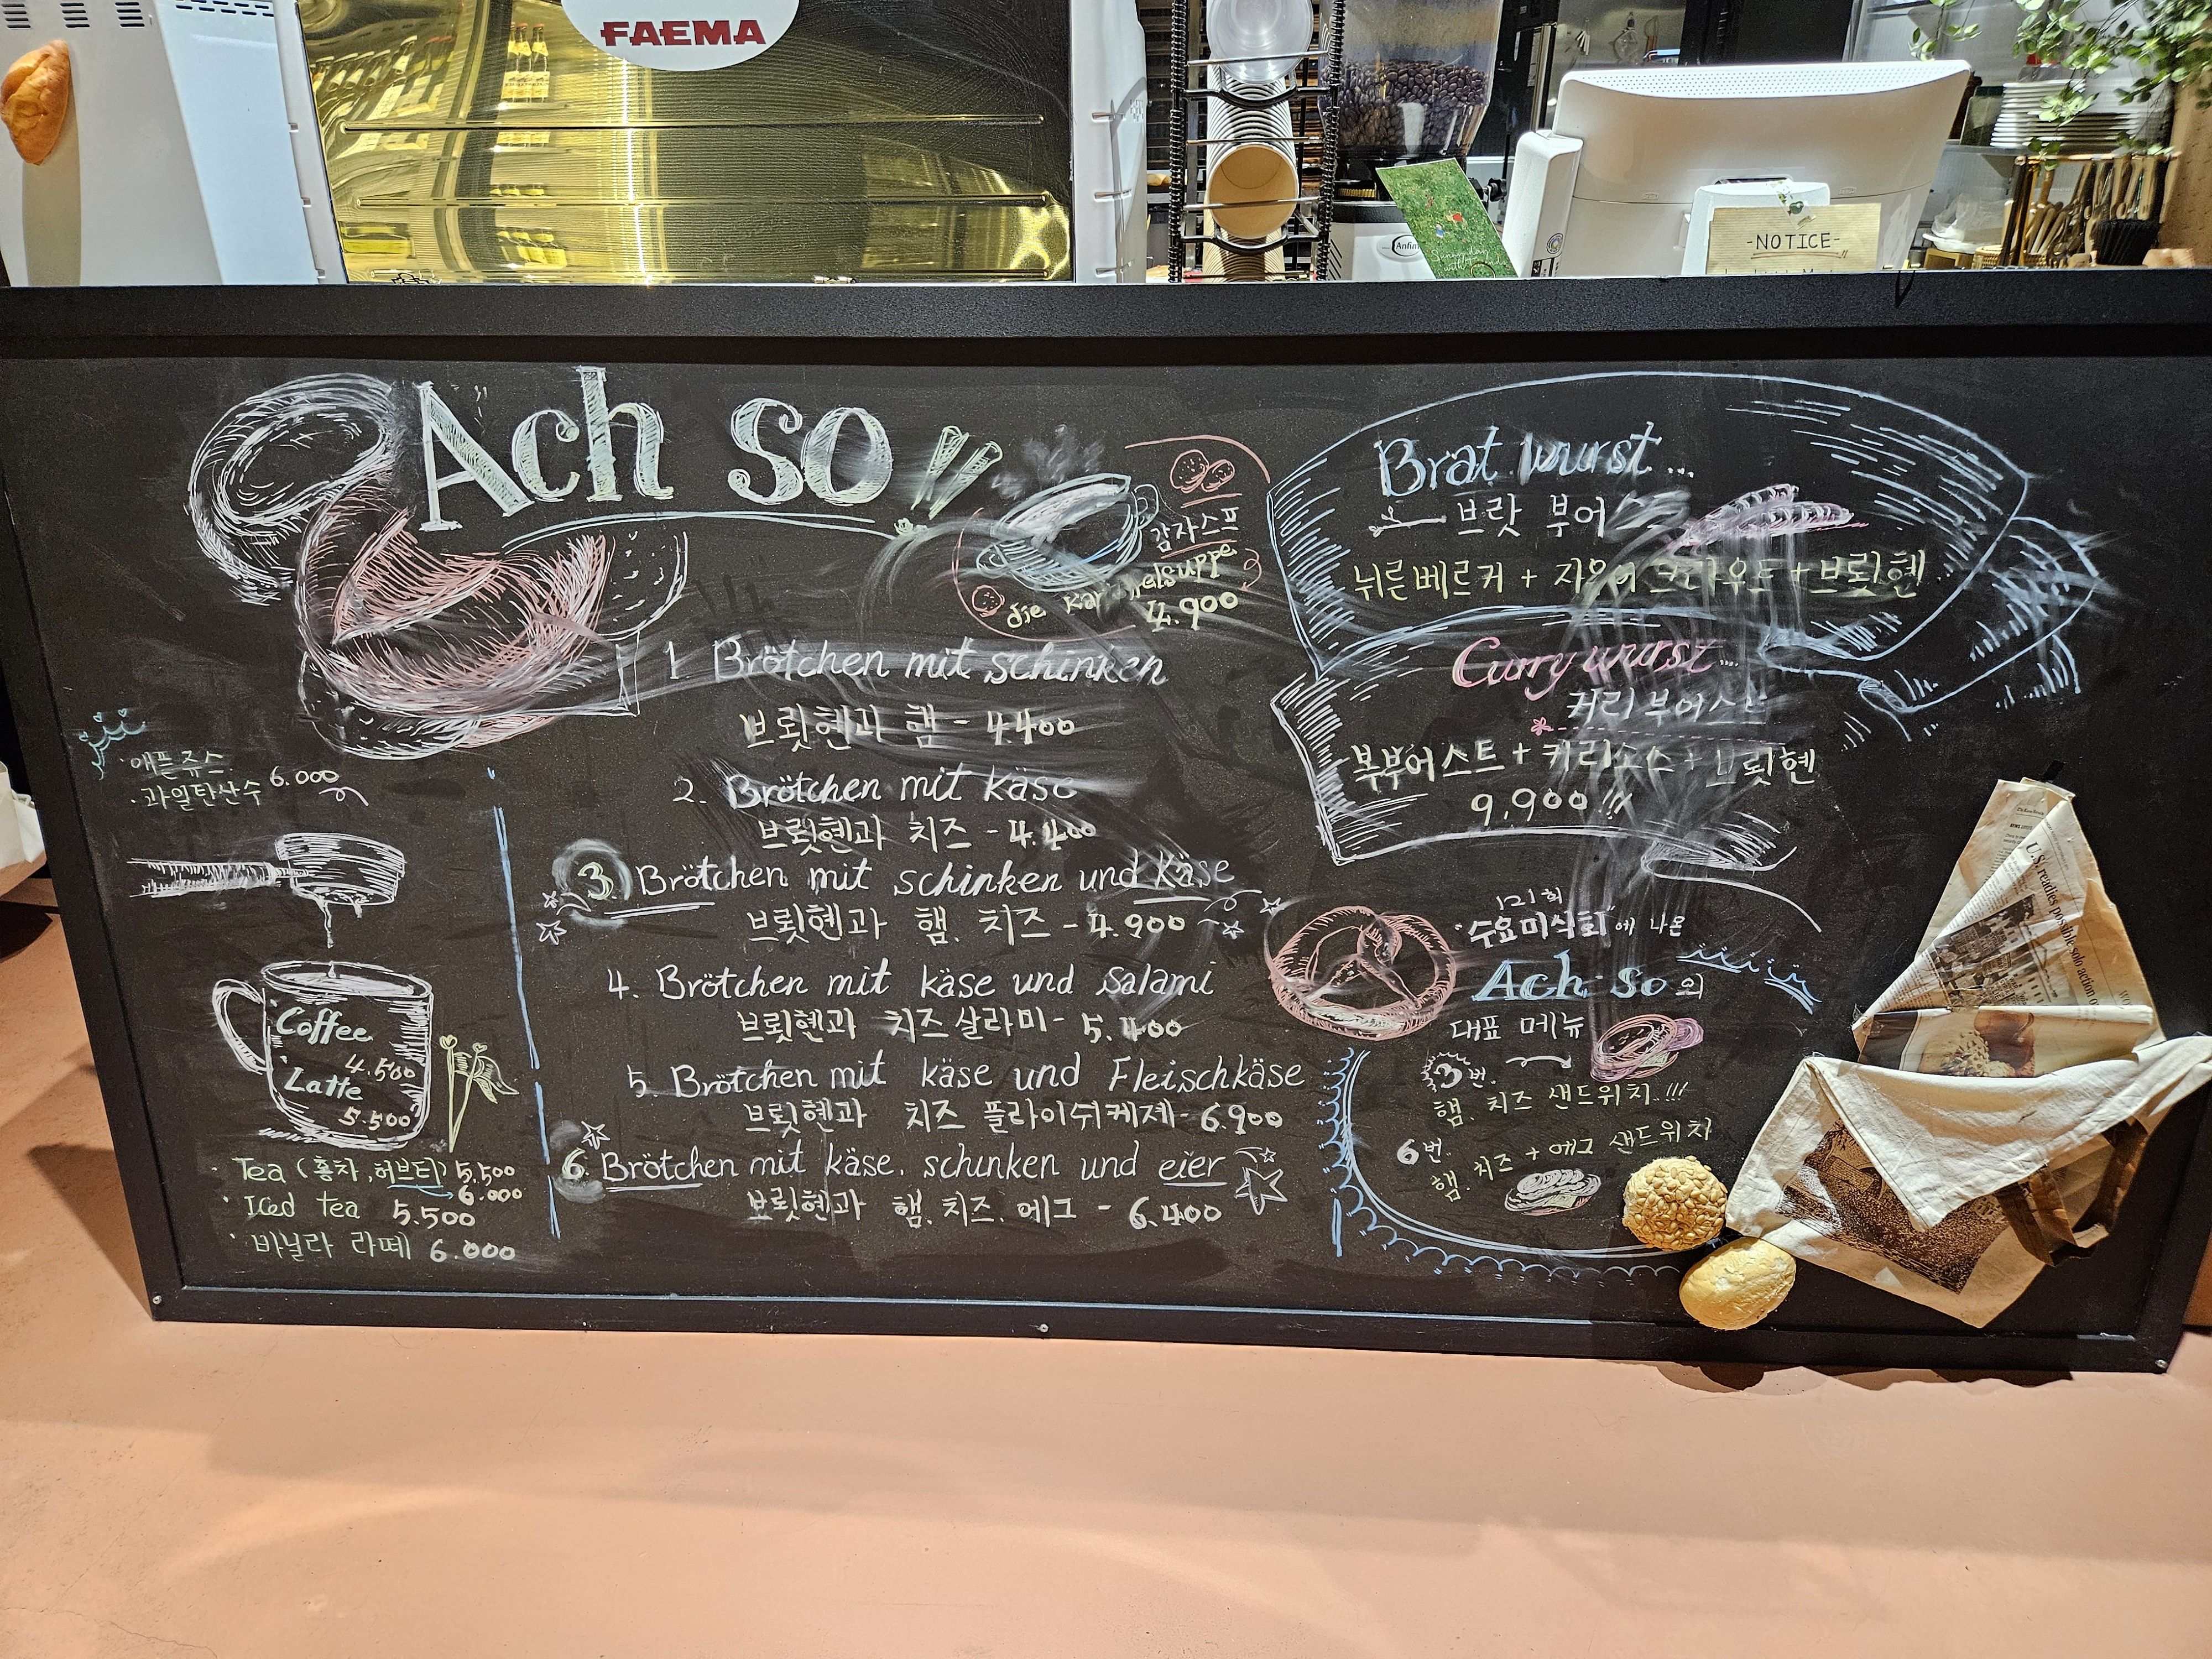 FAEMA
Anfim
-NOTICE-
Ach so
감자스프
die
4.900
1. Brötchen mit schinken
브룃헨과 햄 - 4.400
2. Brötchen mit käse
브룃헨과 치즈 - 4.400
3. Brötchen mit schinken und käse
브룃헨과 햄. 치즈 - 4.900
4. Brötchen mit käse und salami
브룃헨과 치즈 살라미 - 5.400
5. Brötchen mit käse und Fleischkäse
브룃헨과 치즈 플라이쉬케제 - 6.900
6. Brötchen mit käse. schinken und eier
브룃헨과 햄. 치즈. 에그 - 6.400
· 애플쥬스
· 과일탄산수 6.000
· Coffee
4.500
· Latte
5.500
· Tea (홍차, 허브티) 5.500
6.000
· Iced tea 5.500
· 바닐라 라떼 6.000
Brat wurst...
브랏 부어
뉘른베르커 + 크라우트 + 브룃헨
Curry wurst...
커리부어스트
복부어스트 + 커리소스 + 브룃헨
9,900 !!!
121회
"수요미식회"에 나온
Ach so의
대표 메뉴
3번.
햄. 치즈 샌드위치..!!!
6번.
햄. 치즈 + 에그 샌드위치
U.S. readies possible solo action